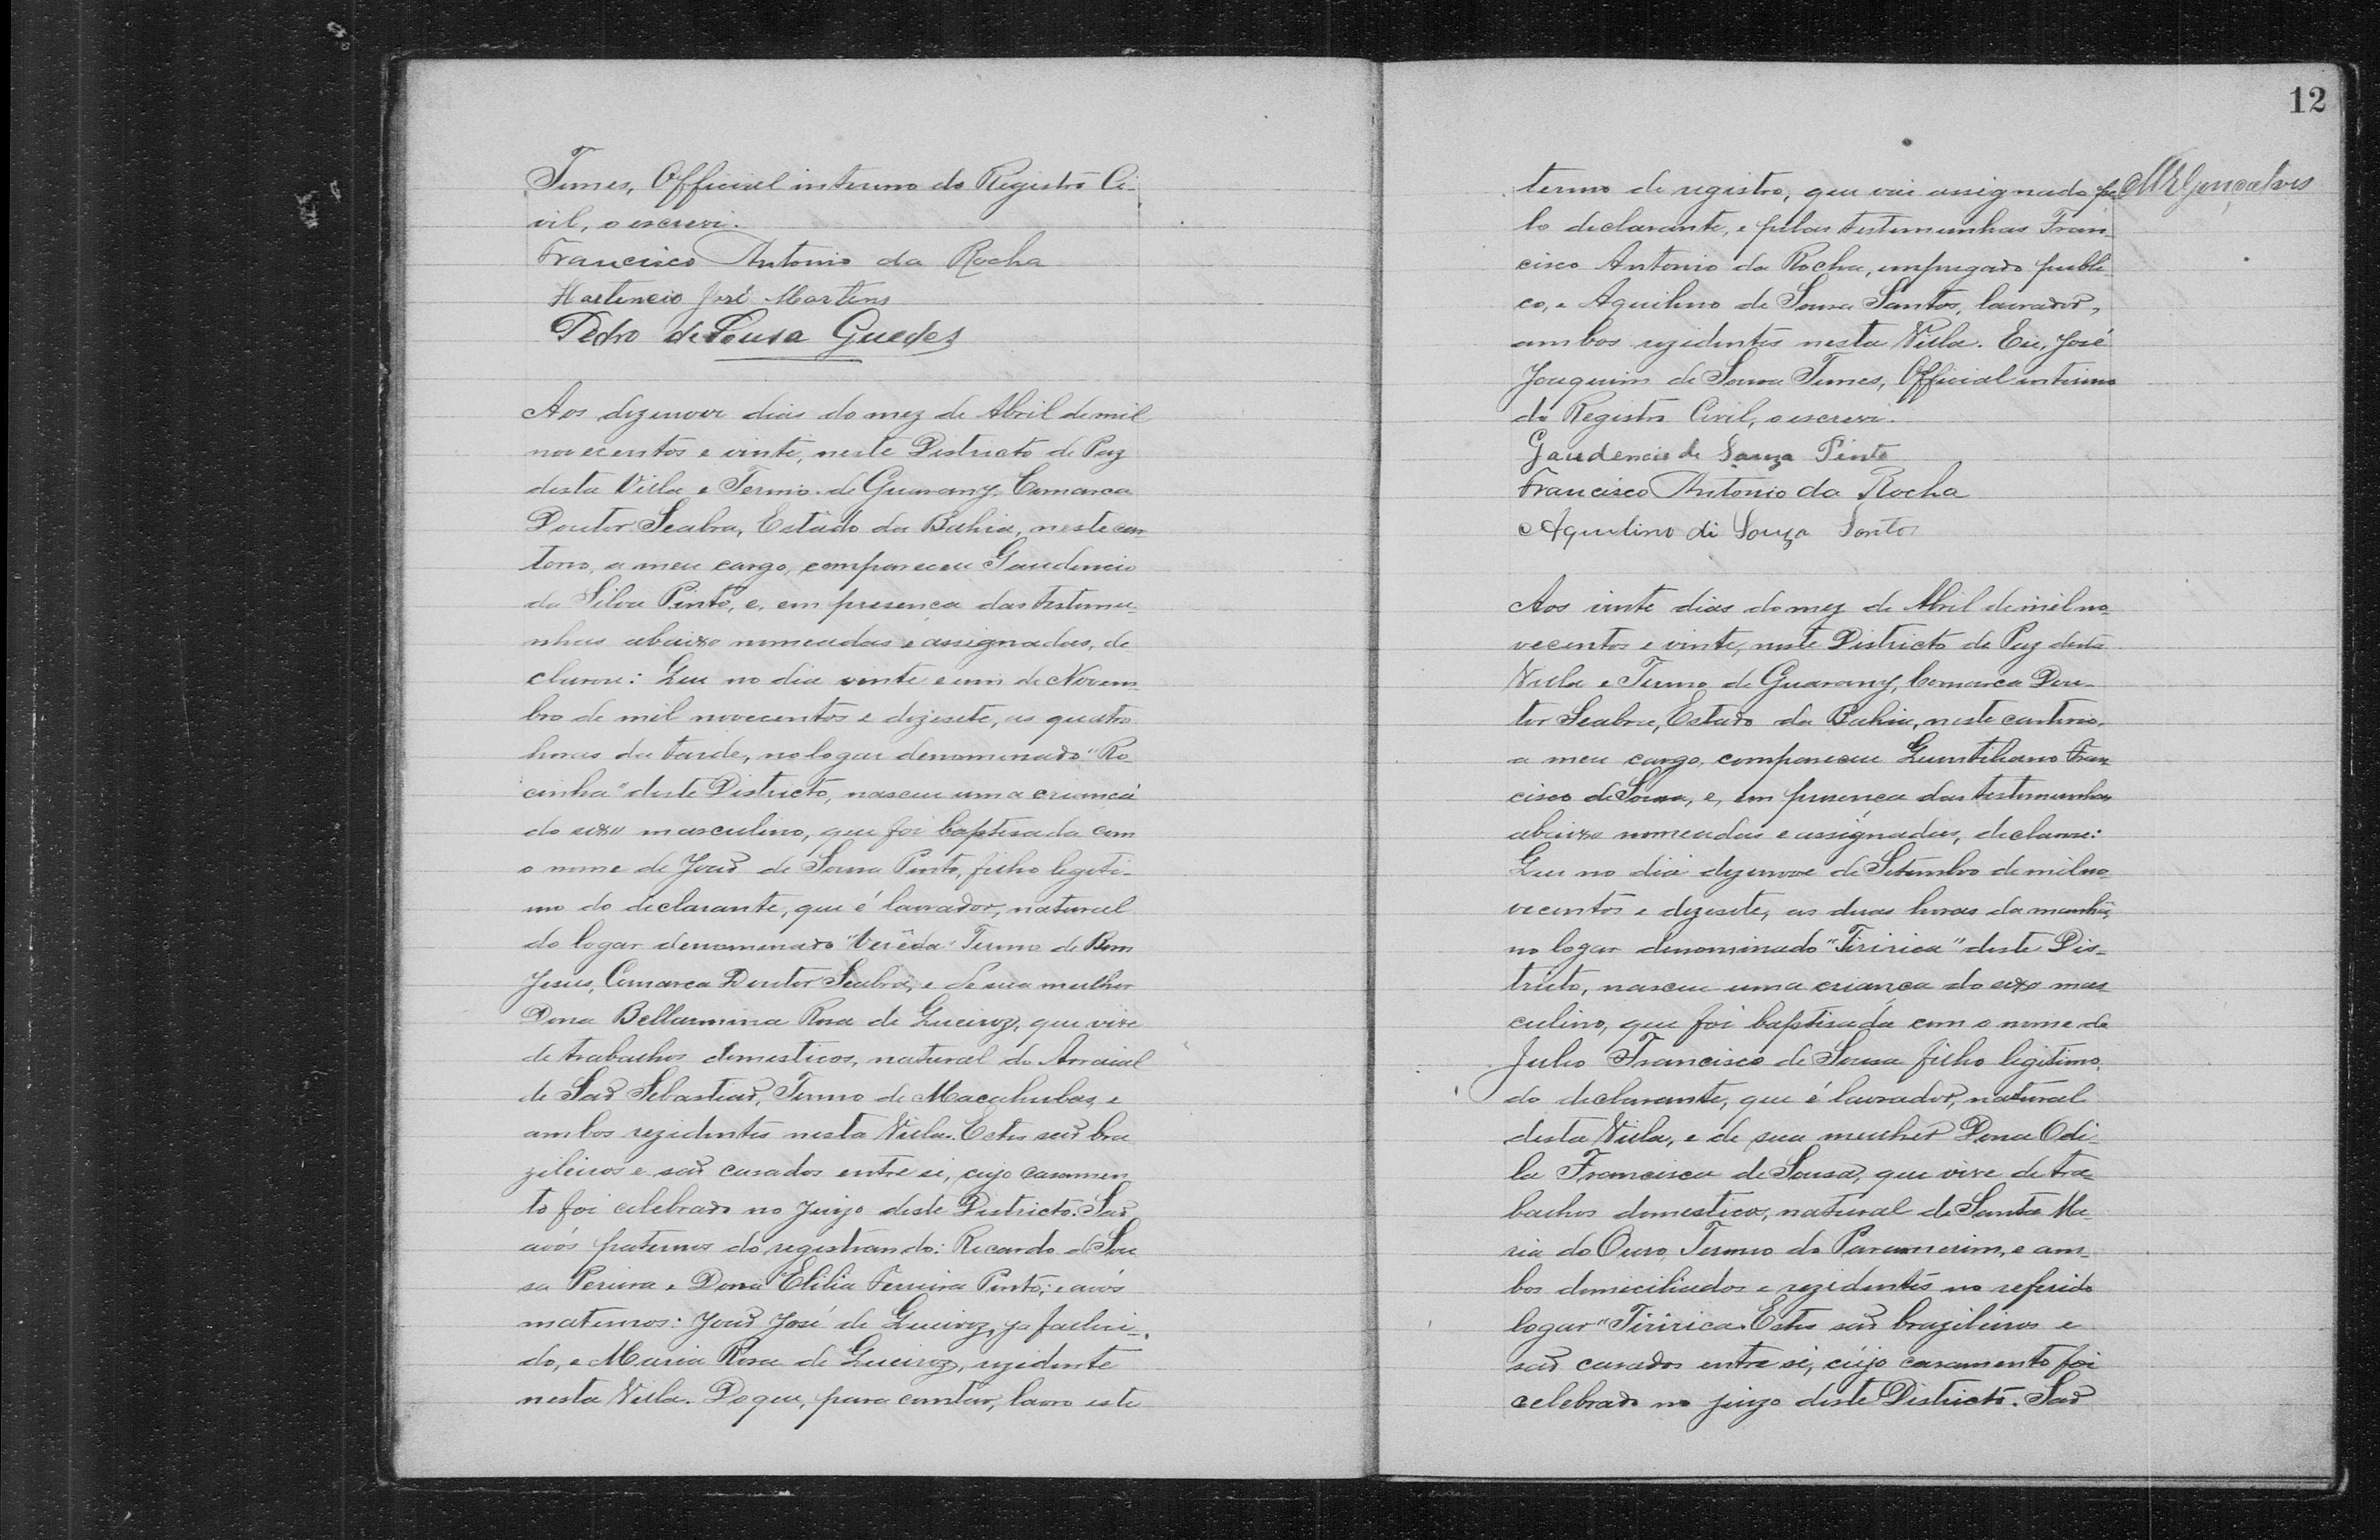 Tunes, Official interino do Registro Ci-
vil, o escrevi.
Francisco Antonio da Rocha
Hortencio José Martins
Pedro de Sousa Guedes
Aos dezenove dias do mez de Abril de mil
novecentos e vinte, neste Districto de Paz
desta Villa e Termo de Guarany, Comarca
Doutor Seabra, Estado da Bahia, neste car
torio, a meu cargo, compareceu Gaudencio
da Silva Pinto, e, em presença das testemu-
nhas abaixo nomeadas e assignadas, de
clarou: Que no dia vinte e um de Novem-
bro de mil novecentos e dezesete, as quatro
horas da tarde, no logar denominado "Ro
cinha" deste Districto, nasceu uma criança
do sexo masculino, que foi baptisada com
o nome de João de Sousa Pinto, filho legiti-
mo do declarante, que é lavrador, natural
do logar denominado "Verêda" Termo de Bom
Jesus, Comarca Doutor Seabra, e de sua mulher
Dona Bellarmina Rosa de Queiroz, que vive
de trabalhos domesticos, natural do Arraial
de São Sebastião, Termo de Macahubas, e
ambos rezidentes nesta Villa. Estes são bra
zileiros e são casados entre si, cujo casamen
to foi celebrado no Juizo deste Districto. São
avós paternos do registrando: Ricardo de Sou
sa Pereira e Dona Elilia Ferreira Pinto; e avós
maternos: João José de Queiroz, ja falleci-
do, e Maria Rosa de Queiroz, rezidente
nesta Villa. Do que, para constar, lavro este
12
termo de registro, que vai assignado pe
MRGonçalves
lo declarante, e pelas testemunhas Fran-
cisco Antonio da Rocha, empregado publi-
co, e Aquilino de Sousa Santos, lavrador,
ambos rezidentes nesta Villa. Eu, José
Joaquim de Sousa Tunes, Official interino
do Registro Civil, o escrevi.
Gaudencio de Souza Pinto
Francisco Antonio da Rocha
Aquilino di Souza Santos
Aos vinte dias do mez de Abril de mil no-
vecentos e vinte, neste Districto de Paz desta
Villa e Termo de Guarany, Comarca Dou-
tor Seabra, Estado da Bahia, neste cartorio,
a meu cargo, compareceu Quintiliano Fran
cisco de Sousa, e, em presença das testemunhas
abaixo nomeadas e assignadas, declarou:
Que no dia dezenove de Setembro de mil no-
vecentos e dezesete, as duas horas da manhã,
no logar denominado "Tiririca" deste Dis-
tricto, nasceu uma criança do sexo mas
culino, que foi baptisada com o nome de
Julio Francisco de Sousa filho legitimo
do declarante, que é lavrador, natural
desta Villa, e de sua mulher Dona Odi-
la Francisca de Sousa, que vive de tra-
balhos domesticos, natural de Santa Ma-
ria do Ouro, Termo do Paramerim, e am-
bos domiciliados e rezidentes no referido
logar "Tiririca. Estes são brazileiros e
são casados entre si, cujo casamento foi
celebrado no juizo deste Districto. São